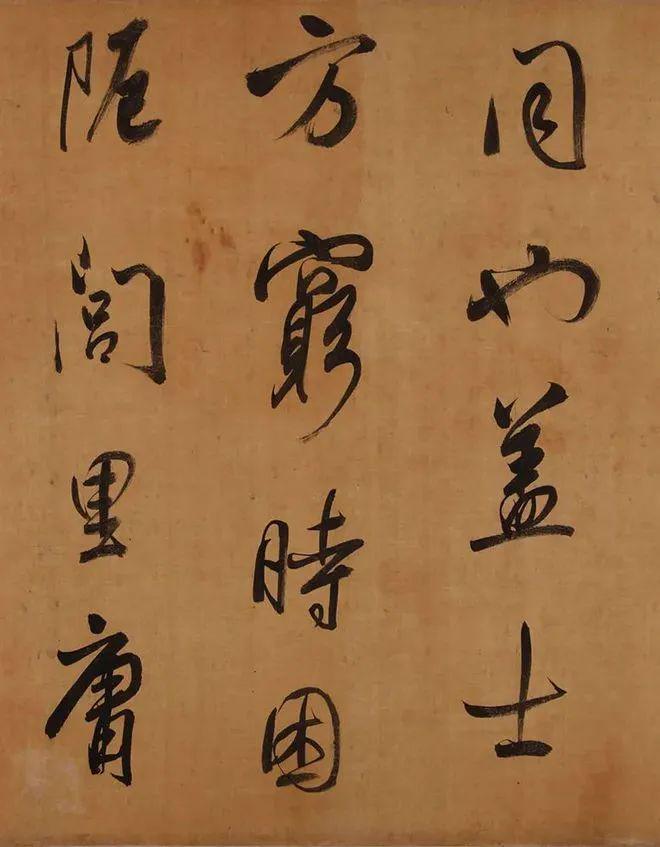 同也盖士
方窮時困
阨閭里庸